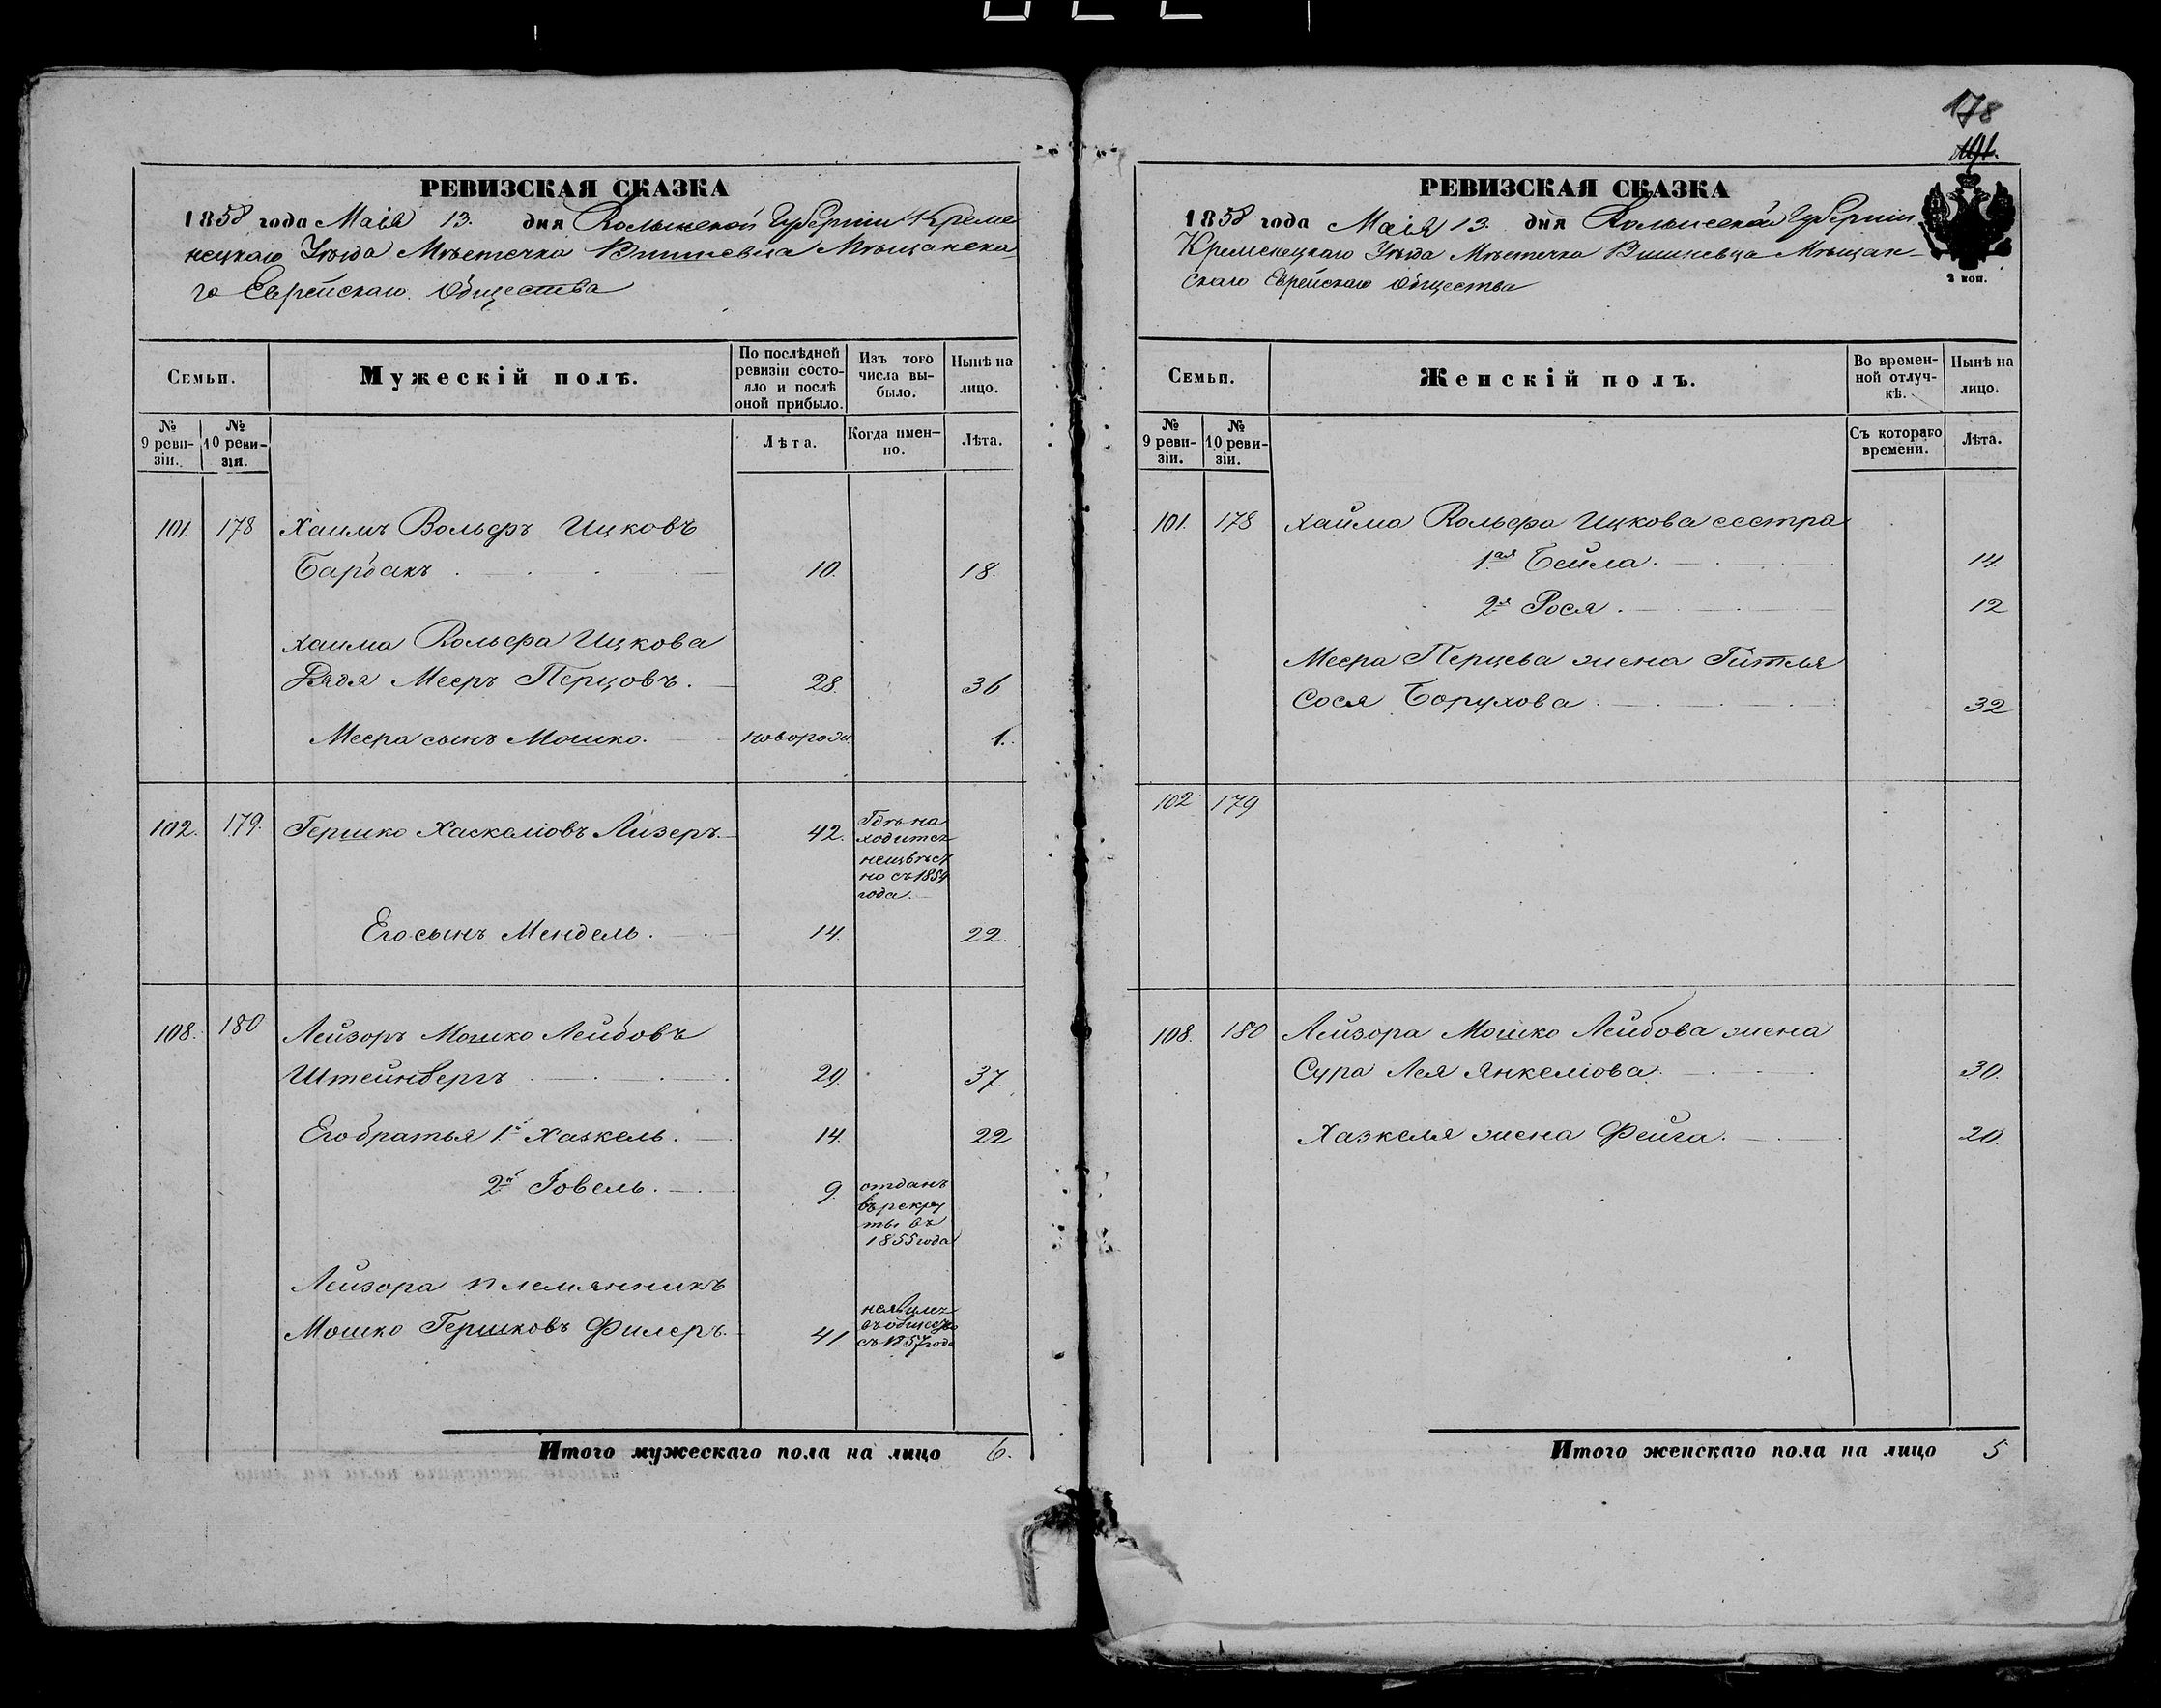 РЕВИЗСКАЯ СКАЗКА
1858 года Маія 13. дня Волынской Губерніи Креме
нецкаго Уѣзда Мѣстечка Вишневца Мѣщанска
го Еврейскаго Общества
Семьи.
Мужескій полъ.
По послѣдней ревизіи состояло и послѣ оной прибыло.
Изъ того числа выбыло.
Нынѣ на лицо.
№ 9 ревизіи.
№ 10 ревизіи.
Лѣта.
Когда именно.
Лѣта.
101. 178 Хаимъ Вольфъ Ицковъ
Барбакъ 10. 18.
Хаима Вольфа Ицкова
Дядя Мееръ Перцовъ. 28. 36
Меера сынъ Мошко. новорож. 1.
102. 179. Гершко Хаскелiовъ Лизеръ. 42.
Гдѣ на
ходится
неизвѣст
но съ 1854
года.
Его сынъ Мендель. 14. 22.
108. 180 Лейзоръ Мошко Лейбовъ
Штейнбергъ 29. 37.
Его братья 1й Хазкель. 14. 22
2й Іовель. 9.
отданъ
въ рекру
ты въ
1855 года
Лейзора племянникъ
Мошко Гершковъ Филеръ. 41.
неявился
въ общество
съ 1857 года
Итого мужескаго пола на лицо 6.
178
РЕВИЗСКАЯ СКАЗКА
1858 года Маія 13. дня Волынской Губерніи
Кременецкаго Уѣзда Мѣстечка Вишневца Мѣщан-
скаго Еврейскаго Общества
2 коп.
Семьи.
Женскій полъ.
Во временной отлучкѣ.
Нынѣ на лицо.
№ 9 ревизіи.
№ 10 ревизіи.
Съ котораго времени.
Лѣта.
101. 178 Хаима Вольфа Ицкова сестра
1.ая Бейла. 14.
2я Рося. 12
Меера Перцева жена Гитля
Сося Борухова 32
102 179
108. 180 Лейзора Мошко Лейбова жена
Сура Лея Янкелiова. 30.
Хазкеля жена Фейга. 20.
Итого женскаго пола на лицо 5